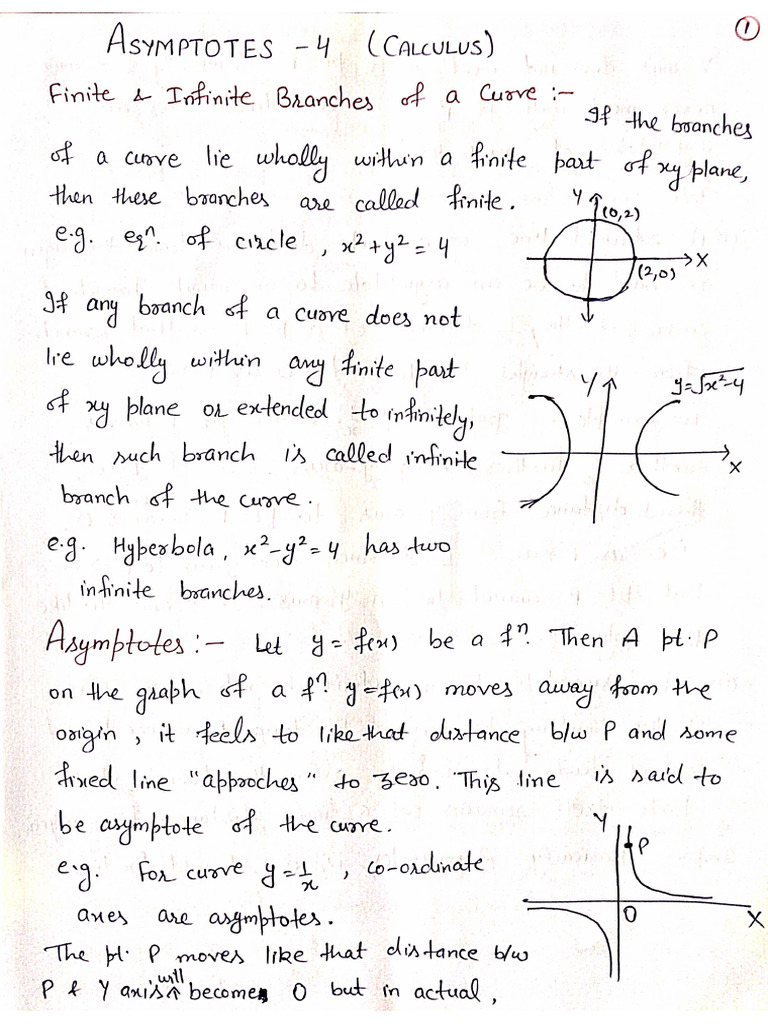 1
ASYMPTOTES - 4 (CALCULUS)
Finite & Infinite Branches of a Curve :-
If the branches
of a curve lie wholly within a finite part of xy plane,
then these branches are called finite.
e.g. eqⁿ. of circle, x²+y² = 4
Y
(0,2)
X
(2,0)
If any branch of a curve does not
lie wholly within any finite part
of xy plane or extended to infinitely,
then such branch is called infinite
branch of the curve.
Y
y=√x²-4
X
e.g. Hyperbola, x²-y²= 4 has two
infinite branches.
Asymptotes :- Let y = f(x) be a fⁿ. Then A pt. P
on the graph of a fⁿ. y=f(x) moves away from the
origin, it feels to like that distance b/w P and some
fixed line "approches" to zero. This line is said to
be asymptote of the curve.
e.g. For curve y = 1/x, co-ordinate
axes are asymptotes.
Y
P
O
X
The pt. P moves like that distance b/w
P & Y axis will become 0 but in actual,